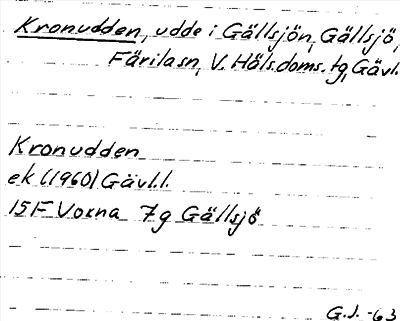 Kronudden, udde i Gällsjön, Gällsjö,
Färilasn, V. Häls.doms.tg, Gävl.
Kronudden
ek (1960) Gävl.l.
15F Voxna 7g Gällsjö
G.J. -63